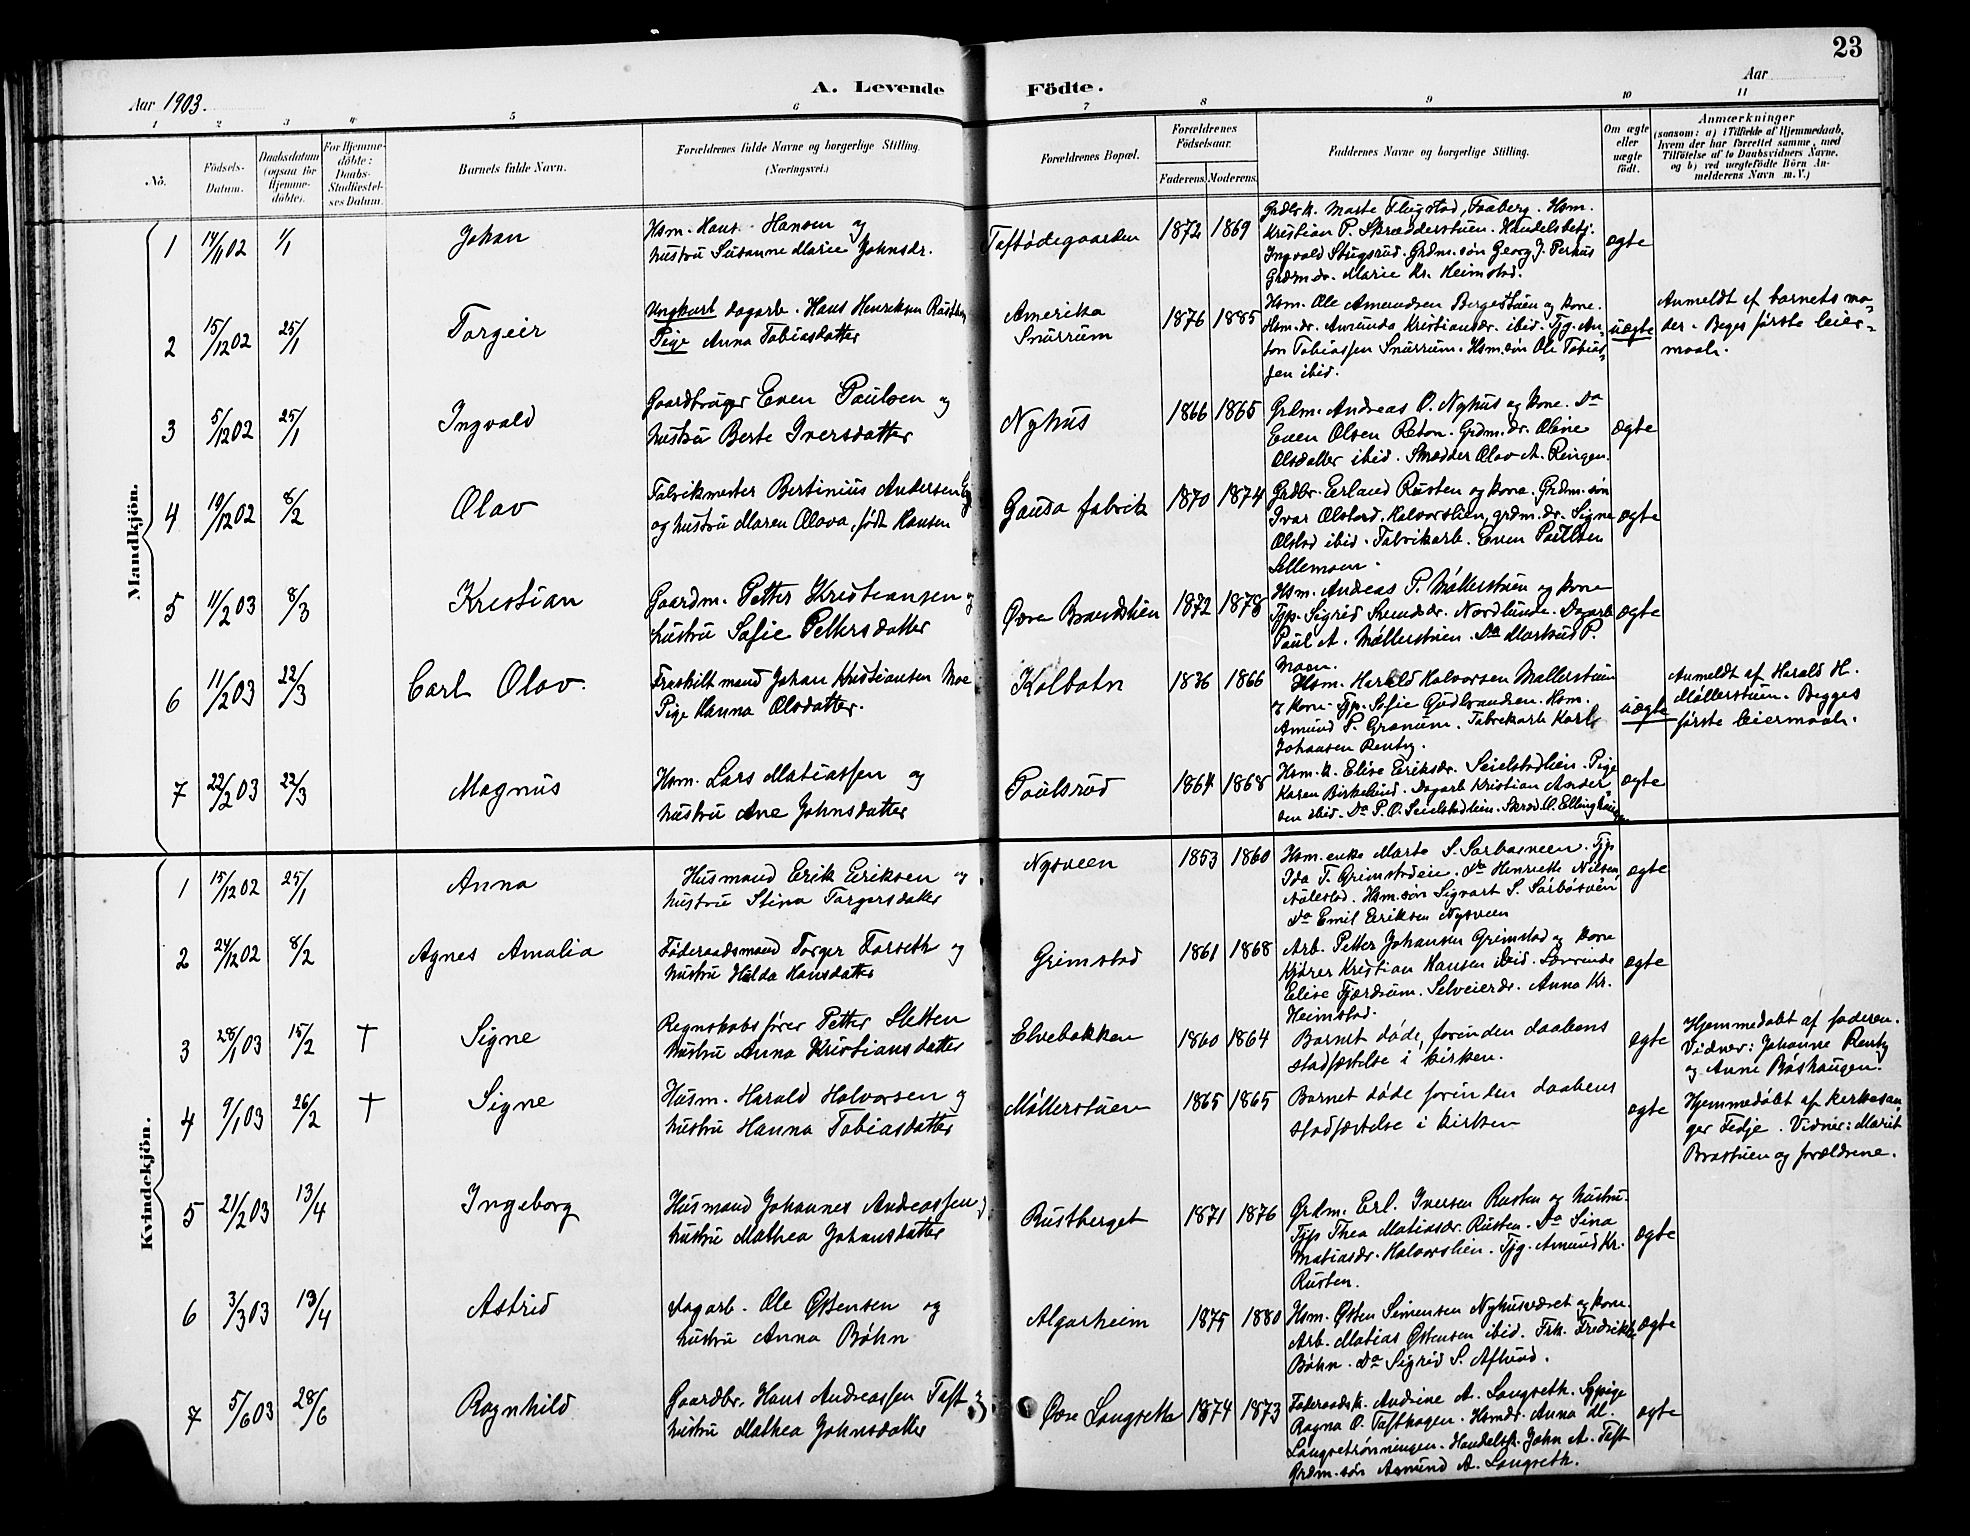 23
Aar 1903.
A. Levende Födte.
Aar
1 2 3 4 5 6 7 8 9 10 11
Nô.
Födsels-
Datum.
Daabsdatum
(ogsaa for
Hjemme-
döbte).
For Hjemme-
döbte:
Daabs-
Stadfæstel-
ses Datum.
Barnets fulde Navn.
Forældrenes fulde Navne og borgerlige Stilling.
(Næringsvei.)
Forældrenes Bopæl.
Forældrenes
Födselsaar.
Faderens. Moderens.
Faddernes Navne og borgerlige Stilling.
Om ægte
eller
uægte
födt.
Anmærkninger
(saasom: a) i Tilfælde af Hjemmedaab,
hvem der har forrettet samme, med
Tilföielse af to Daabsvidners Navne,
og b) ved uægtefödte Börn An-
melderens Navn m. V.)
Mandkjön.
1 14/11 02 1/1 Johan
Hsm. Hans Hansen og
hustru Susanne Marie Johnsdr.
Taftødegaarden 1872 1869
Grdbrk. Marte Flugstad, Faaberg. Hsm.
Kristian P. Skrædderstuen. Handelsbetj.
Ingvald Stugsrud. Grdm.søn Georg J. Perhus
Grdm.dr. Marie Kr. Heimstad.
ægte
2 15/12 02 25/1 Torgeir
Ungkarl dagarb. Hans Henriksen
Pige Anna Tobiasdatter
Amerika
Snurrum
1876 1885
Hsm. Ole Amundsen Bergestuen og kone.
Hsm.dr. Amunda Kristiansdr. ibid. Tjg. An-
ton Tobiassen Snurrum. Hsm.søn Ole Tobias-
sen ibid.
uægte
Anmeldt af barnets mo-
der. Beges første leier-
maal.
3 5/12 02 25/1 Ingvald
Gaardbruger Even Paulsen og
hustru Berte Iversdatter
Nyhus 1866 1865
Grdm. Andreas O. Nyhus og kone. Do
Even Olsen Roton. Grdm.dr. Oline
Olsdatter ibid. Skrædder Olav A. Ringen.
ægte
4 19/12 02 8/2 Olav
Fabrikmester Bertinius Andersen
og hustru Maren Olava, født Hansen
Gausa fabrik 1870 1874
Grdbr. Erland Rusten og kone. Grdm.søn
Ivar Olstad. Halvorslien, grdm.dr. Signe
Olstad ibid. Fabrikarb. Even Paulsen
Sellemoen.
ægte
5 11/2 03 8/3 Kristian
Gaardm. Petter Kristiansen og
hustru Sofie Pettersdatter
Øvre Brandslien 1872 1878
Hsm. Andreas P. Møllerstuen og kone
Tjp. Sigrid Svendsdr. Nordlunde. Dagarb
Paul A. Møllerstuen. Do Martnus P.
Moen.
ægte
6 11/2 03 22/3 Carl Olav.
Fraskilt mand Johan Kristiansen Moe
Pige Hanna Olsdatter.
Kolbotn 1836 1866
Hsm. Harald Halvorsen Møllerstuen
og kone. Tjp. Sofie Gudbrandsen. Hsm.
Amund P. Granum. Fabrikarb Karl
Johansen Renby.
uægte
Anmeldt af Harald H.
Møllerstuen. Begges
første leiermaal.
7 22/2 03 22/3 Magnus
Hsm. Lars Matiassen og
hustru Ane Johnsdatter
Paulsrud 1864 1868
Hsm.k. Elise Eriksdr. Seielstadlien. Pige
Karen Birkelund. Dagarb Kristian Ander-
sen ibid. Do P. O. Seielstadlien. Skræd.
ægte
Kvindekjön.
1 15/12 02 25/1 Anna
Husmand Erik Eriksen og
hustru Stina Torgersdatter
Nysveen 1853 1860
Hsm.enke Marte S. Sørbøsveen. Tjp
Ida T. Grimstadeie. Do Henriette Nilsen,
Aulestad. Hsm.søn Sigvart S. Sørbøsveen
Do Emil Eriksen Nysveen
ægte
2 24/12 02 8/2 Agnes Amalia
Føderaadsmand Torger Forseth og
hustru Hilda Hansdatter
Grimstad 1861 1868
Arb. Petter Johansen Grimstad og kone
Kjører Kristian Hansen ibid. Lærerinde
Elise Fjærdrum. Selveierdr. Anna Kr.
Heimstad.
ægte
3 28/1 03 15/2 † Signe
Regnskabsfører Petter Sletten
hustru Anna Kristiansdatter
Elvebakken 1860 1864
Barnet døde, forinden daabens
stadfæstelse i kirken.
ægte
Hjemmedøbt af faderen.
Vidner: Johanne Renby
og Anne Baashaugen.
4 9/1 03 26/2 † Signe
Husm. Harald Halvorsen og
hustru Hanna Tobiasdatter
Møllerstuen 1865 1865
Barnet døde forinden daabens
stadfæstelse i kirken
ægte
Hjemmedøbt af kirkesan-
ger Fedje. Vidner: Marit
Brostuen og forældrene.
5 21/2 03 13/4 Ingeborg
Husmand Johannes Andreassen og
hustru Mathea Johansdatter
Rustberget 1871 1876
Grdm. Erl. Iversen Rusten og hustru.
Tjp Thea Matiasdr. Rusten. Do Sina
Matiasdr. Halvorslien. Tjg. Amund Kr.
Rusten.
ægte
6 3/3 03 13/4 Astrid
Dagarb. Ole Østensen og
hustru Anna Bøhn
Algarheim 1875 1880
Hsm. Østen Simensen Nyhusværet og kone.
Arb. Matias Østensen ibid. Frk. Fredrikke
Bøhn. Do Sigrid S. Aflund.
ægte
7 5/6 03 28/6 Ragnhild
Gaardbr. Hans Andreassen Taft
hustru Mathea Johnsdatter
Øvre Langseth 1874 1873
Føderaadsk. Andrine A. Langseth. Sypige
Ragna O. Tafthagen. Hsmdr. Anna M.
Langsetrønningen. Handelsk. John A. Taft
Grdm.søn Asmund A. Langseth.
ægte